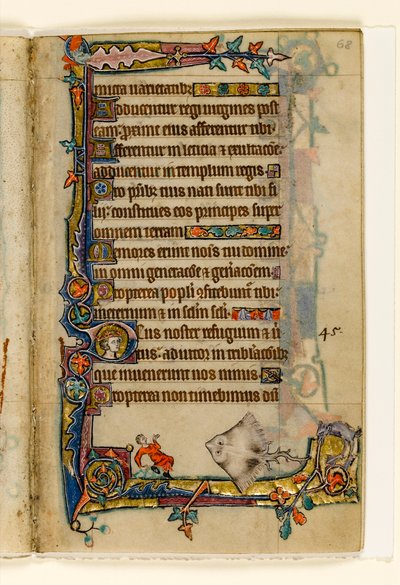 68
micta uarietatib;
Adducentur regi uirgines post
eam: proxime eius afferentur tibi.
Afferentur in leticia & exultacõe:
adducentur in templum regis.
Pro pr̃ib; tuis nati sunt tibi fi
lij: constitues eos principes super
omnem terram.
Memores erunt nõis tui domine:
in omni generacõe & geñacõem.
Propterea popli cõfitebunt tibi:
ineternum & in sclm scli.
Deus noster refugium & ũ
tus: adiutor in tribulacõib;
45.
que inuenerunt nos nimis.
Propterea non timebimus dũ